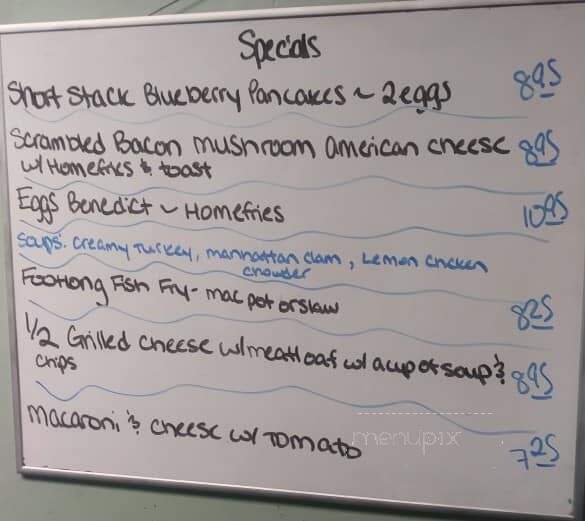 Specials
Short Stack Blueberry Pancakes ~ 2 eggs 8.95
Scrambled Bacon mushroom american cheese 8.95
w/ Homefries & toast
Eggs Benedict ~ Homefries 10.95
Soups: creamy Turkey, manhattan clam, Lemon chicken
chowder
Footlong Fish Fry - mac pot or slaw 8.25
1/2 Grilled cheese w/ meatloaf w/ a cup of soup & 8.95
chips
macaroni & cheese w/ Tomato 7.25
menupix